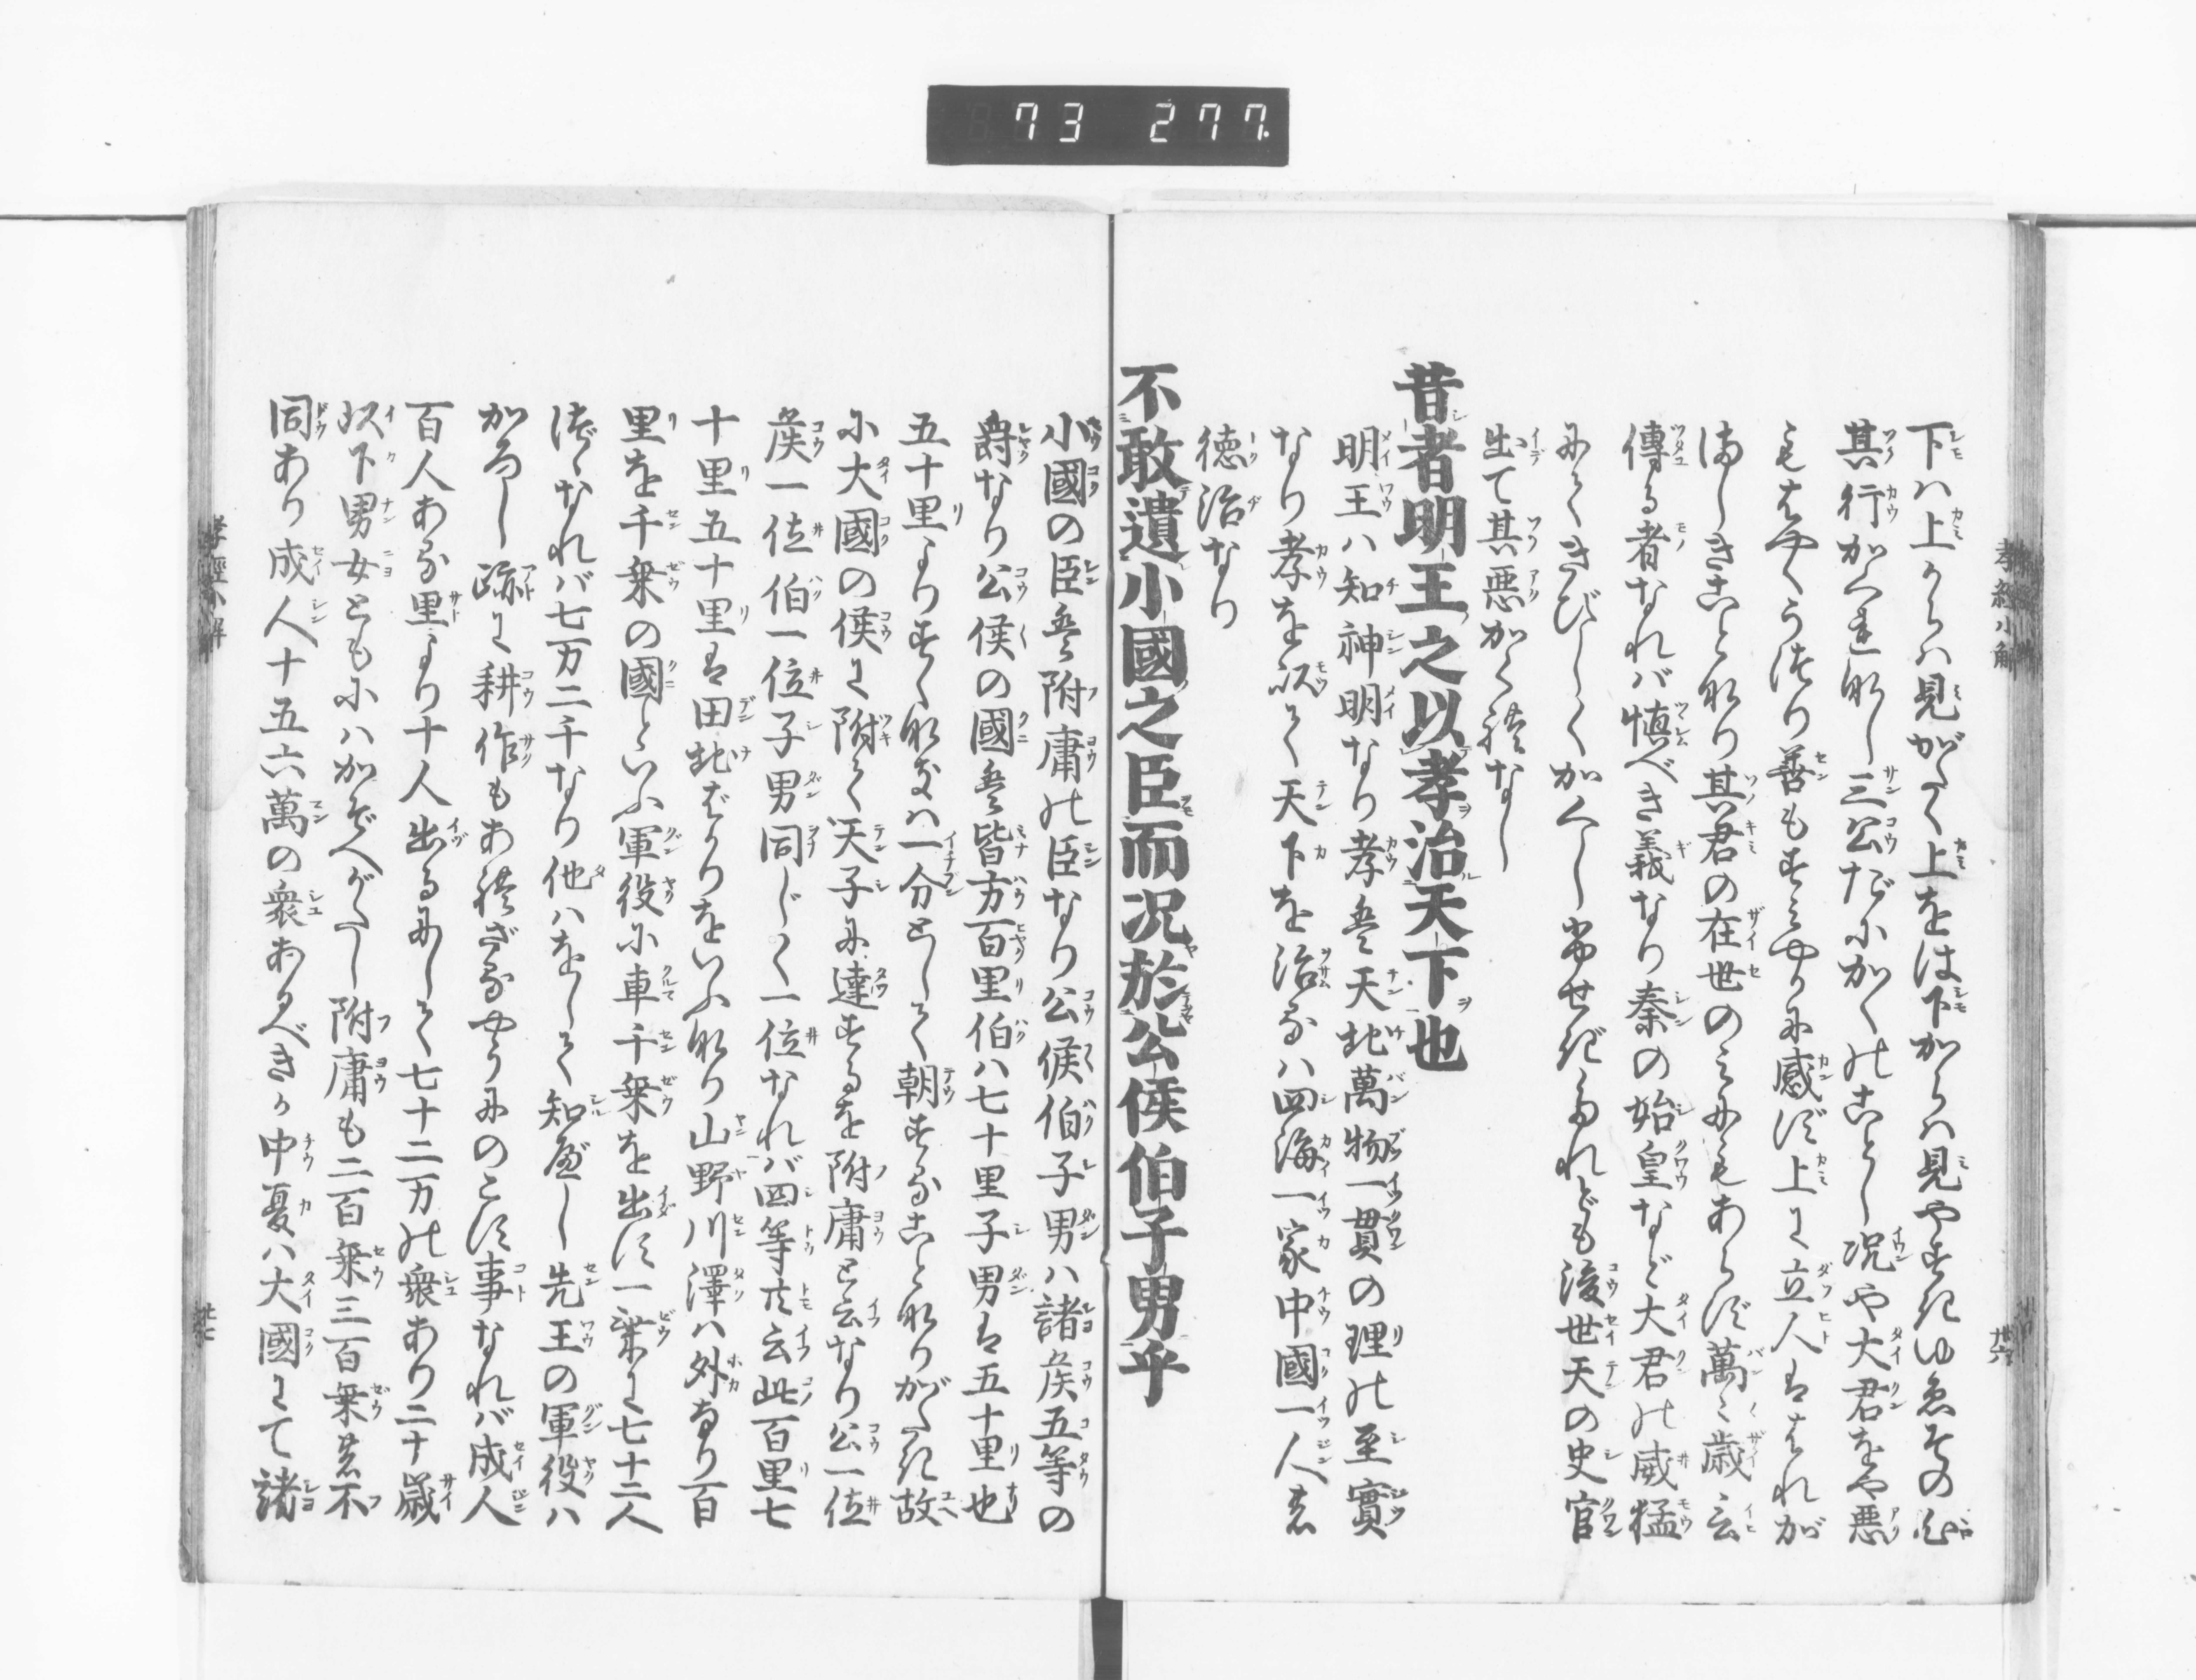 73 277.
孝經小解 廿六
下ハ上からハ見がたく上をは下からハ見やすきゆゑその心
其行かくれなし三公だにかくのことし况や大君をや悪
もはやくうつり善もすミやかに感ず上に立人ははれが
ましきことなり其君の在世のミにもあらず萬〻歳云
傳る者なれバ慎べき義なり秦の始皇など大君の威猛
にてきびしくかくし給せけれども後世天の史官
出て其悪かくれなし
昔者明王之以孝治天下也
明王ハ知神明なり孝は天地萬物一貫の理の至實
なり孝を以て天下を治るハ四海一家中國一人は
徳治なり
不敢遺小國之臣而况於公侯伯子男乎
小國の臣は附庸の臣なり公侯伯子男ハ諸侯五等の
爵なり公侯の國は皆方百里伯ハ七十里子男は五十里也
五十里よりすくなきハ一分として朝することなりがたき故
に大國の侯に附て天子に達するを附庸と云なり公一位
侯一位伯一位子男同じく一位なれバ四等共云此百里七
十里五十里は田地ばかりをいふなり山野川澤ハ外なり百
里を千乗の國といふ軍役に車千乗を出す一乗に七十二人
づゝなれバ七万二千なり他ハをして知べし先王の軍役ハ
かろし跡に耕作もあれざるやうにのこす事なれバ成人
百人ある里より十人出るにして七十二万の衆あり二十歳
以下男女ともにハかぞへがたし附庸も二百乗三百乗は不
同あり成人十五六萬の衆あるべきか中夏ハ大國にて諸
孝經小解 廿七